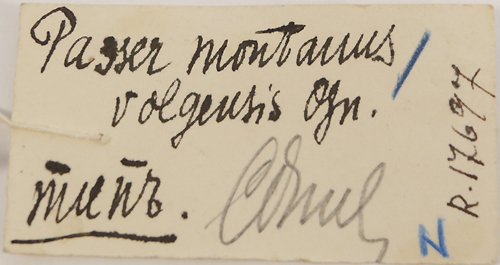 Passer montanus
volgensis Ogn.
типъ.
R-17697
N